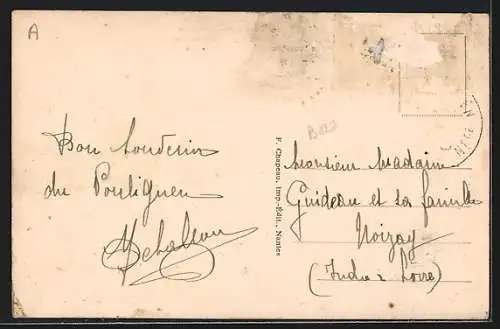 A
Bon souvenir
du Pouliguen
F. Chapeau, Imp.-Édit., Nantes
Monsieur Madame
Guideau et sa famille
Noizay
(Indre & Loire)